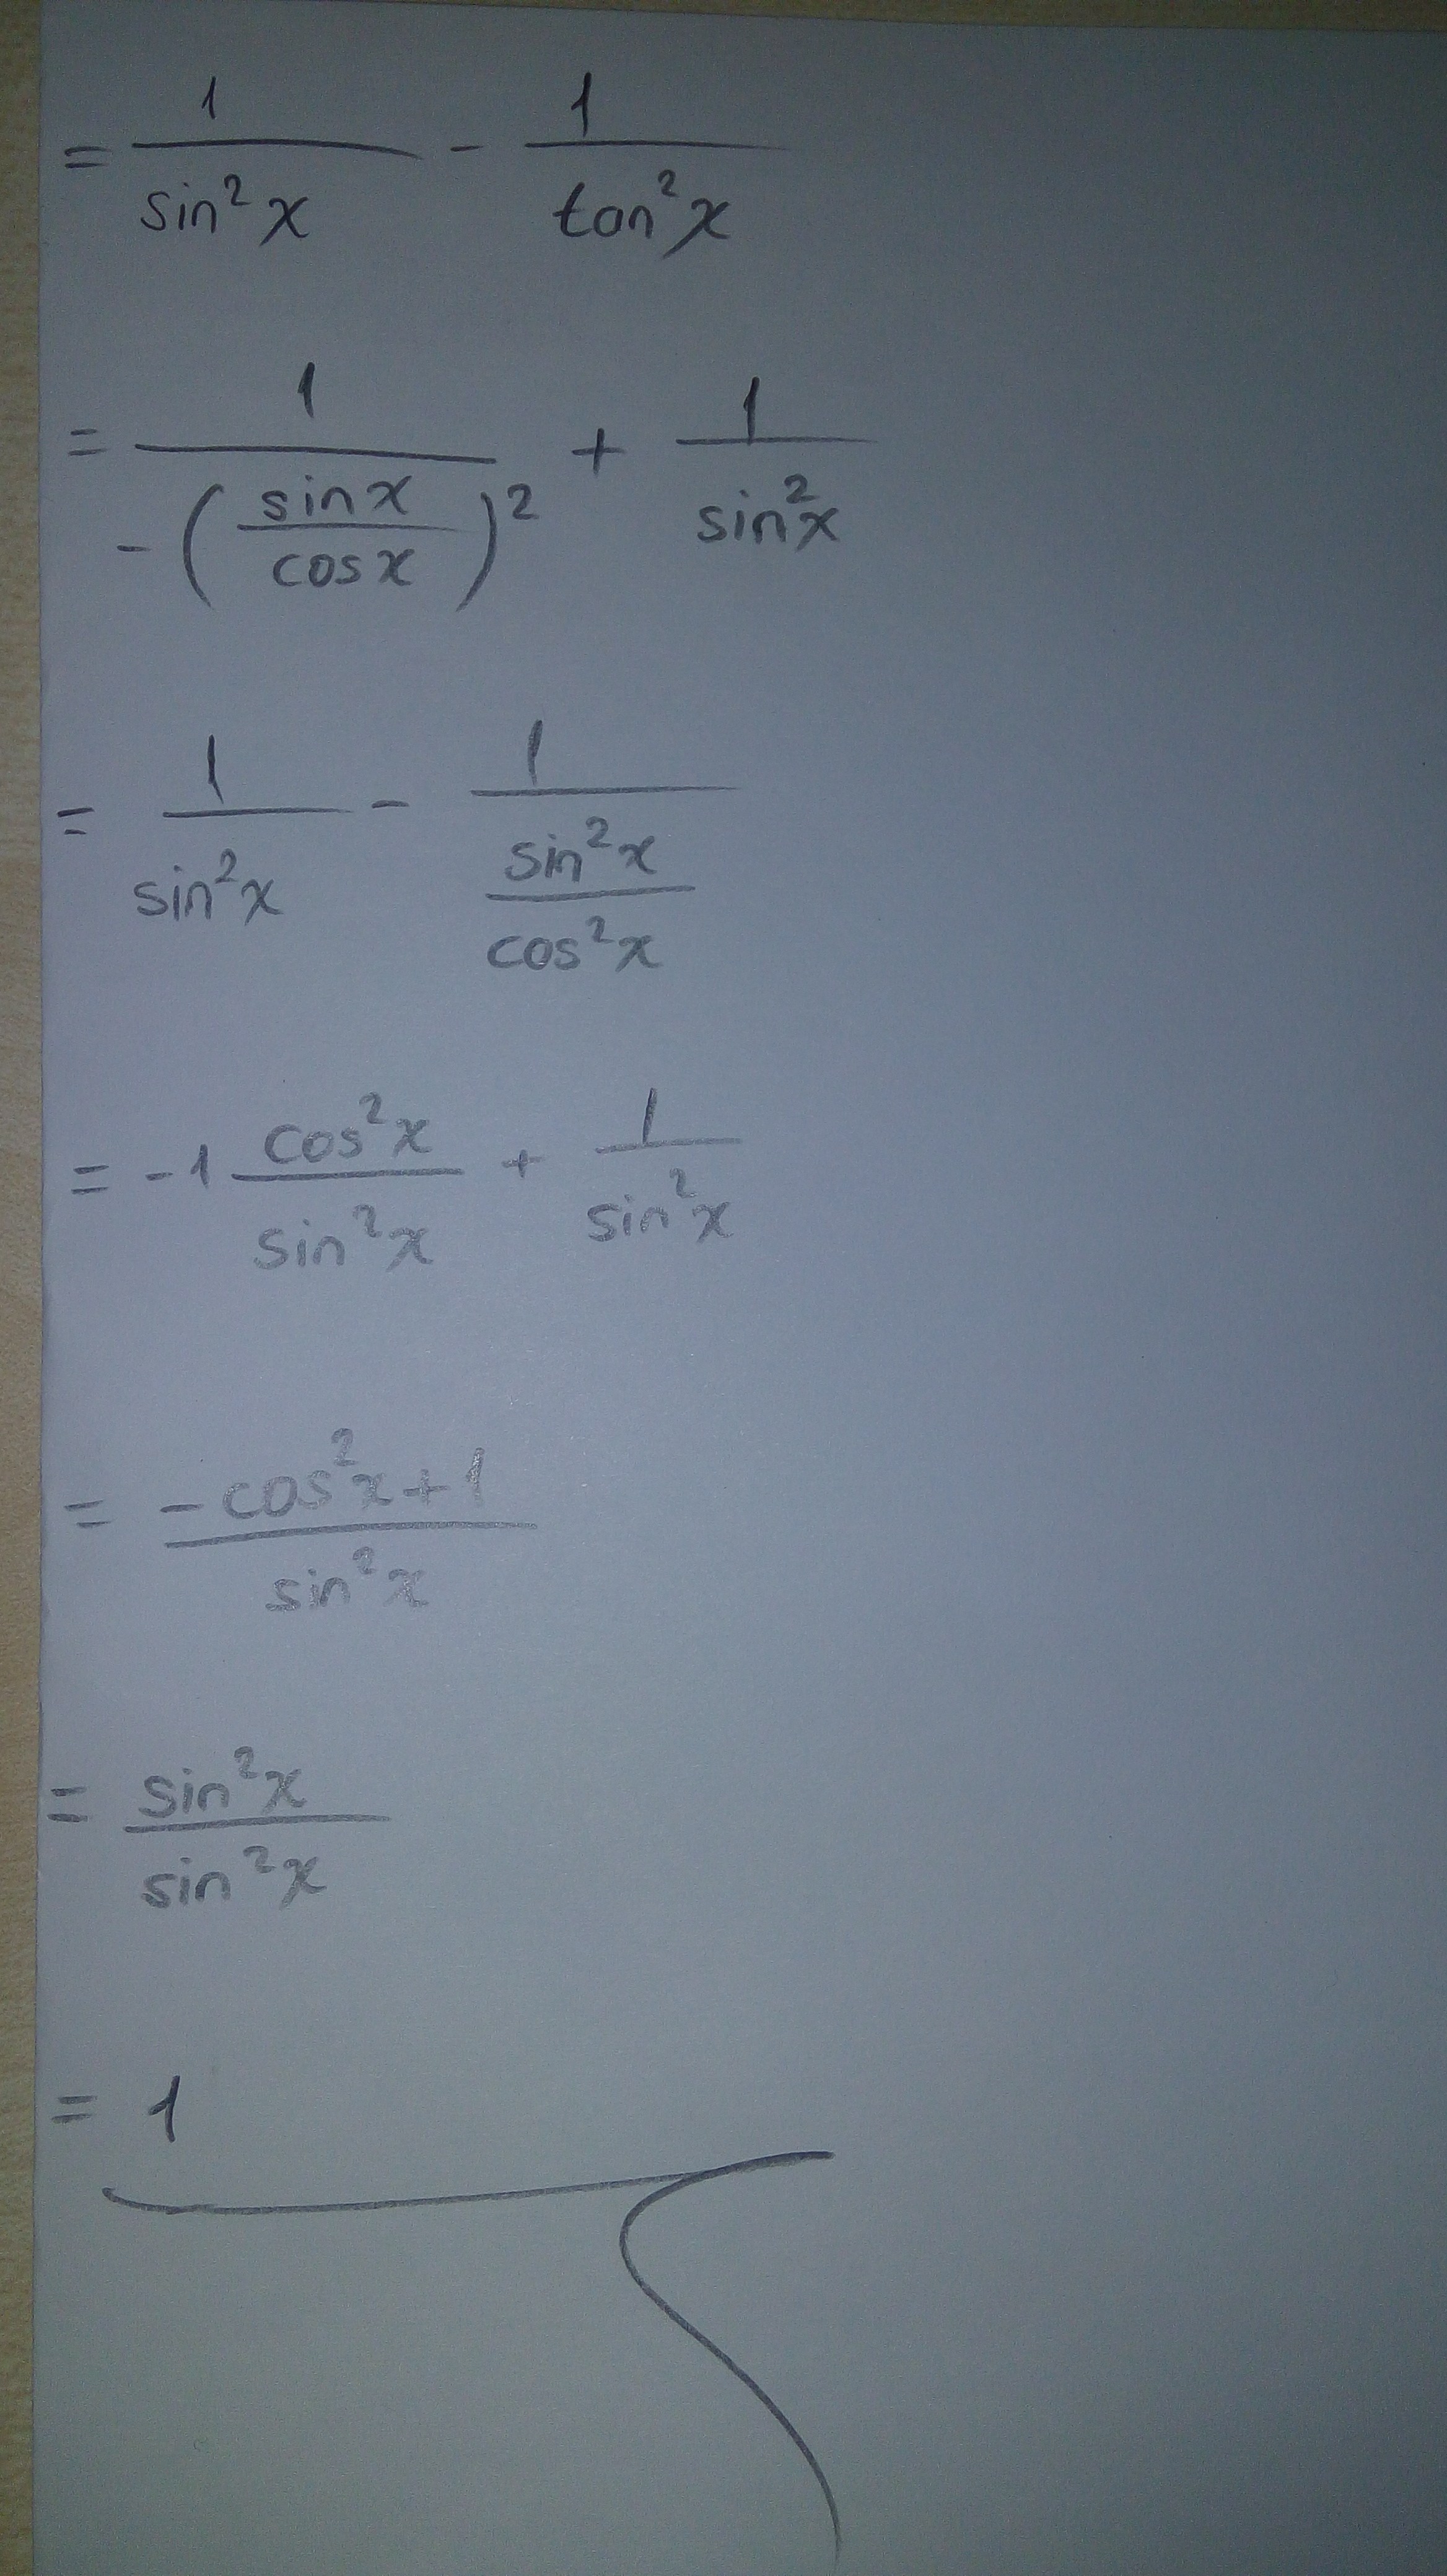 = 1/sin²x - 1/tan²x
= 1/-(sinx/cosx)² + 1/sin²x
= 1/sin²x - 1/(sin²x/cos²x)
= -1 cos²x/sin²x + 1/sin²x
= (-cos²x+1)/sin²x
= sin²x/sin²x
= 1